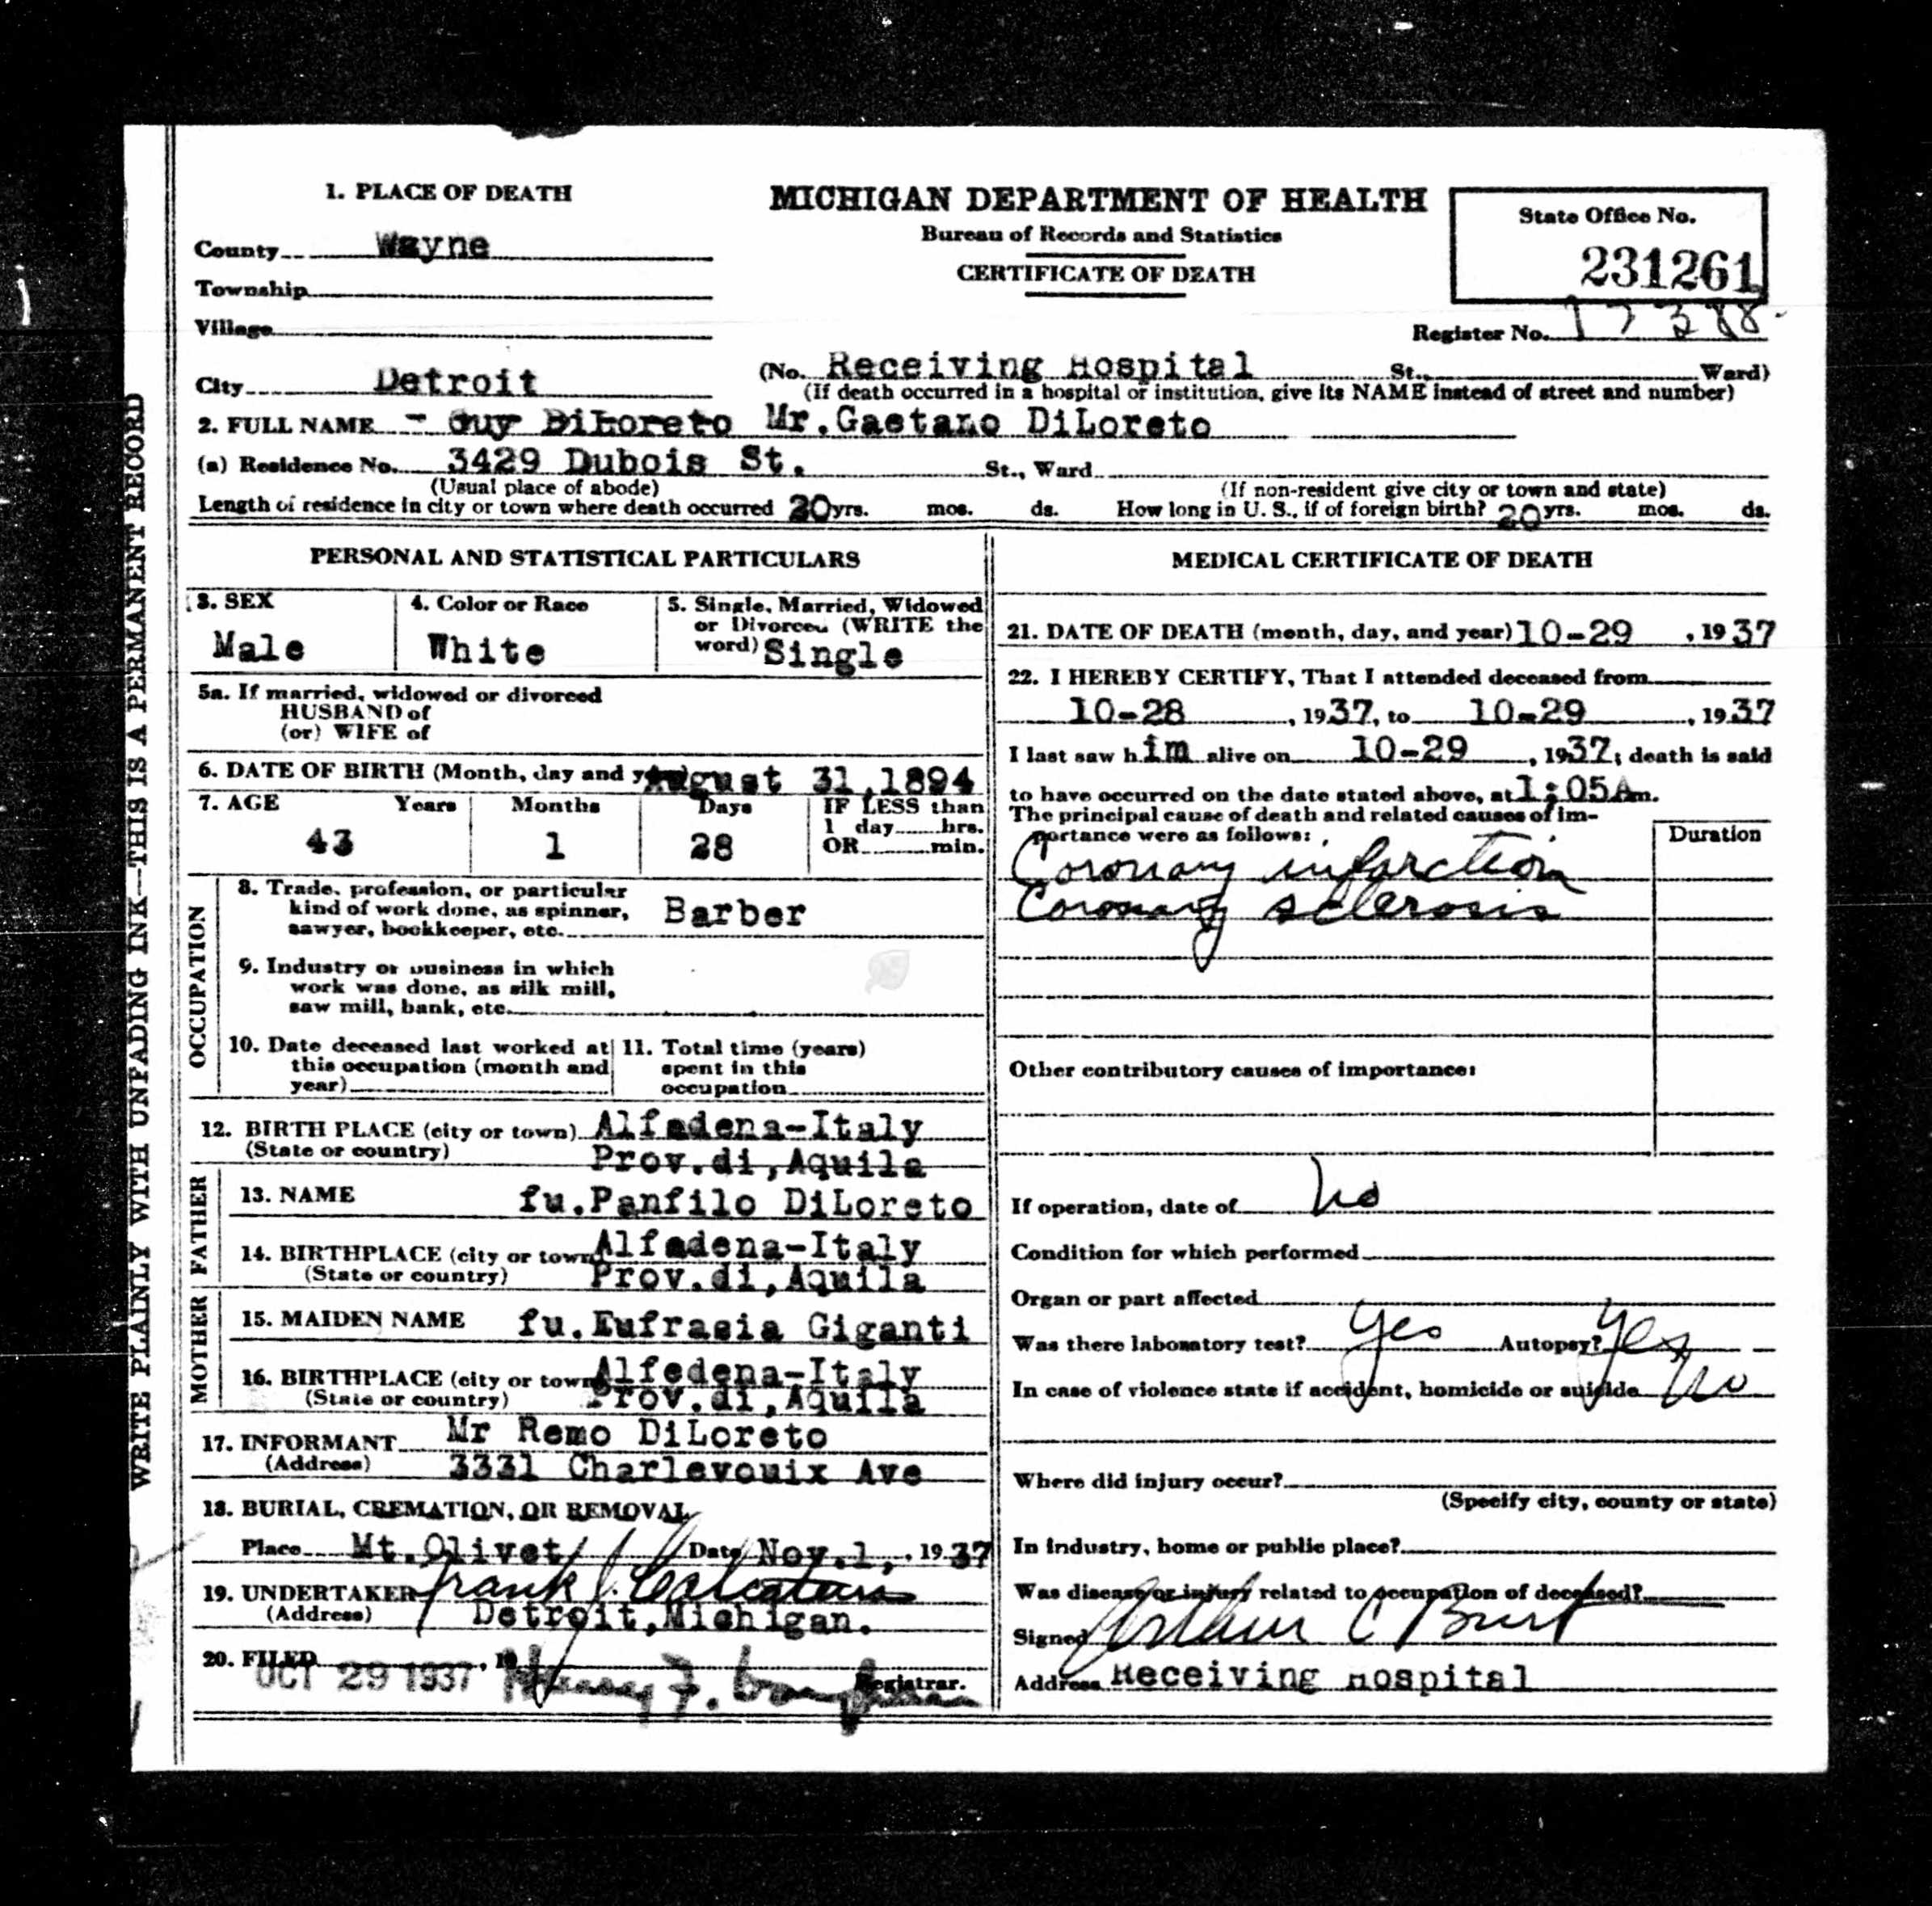 1. PLACE OF DEATH
MICHIGAN DEPARTMENT OF HEALTH
Bureau of Records and Statistics
CERTIFICATE OF DEATH
State Office No.
231261
County Wayne
Township
Village
Register No. 17388
City Detroit (No. Receiving Hospital St., Ward)
(If death occurred in a hospital or institution, give its NAME instead of street and number)
2. FULL NAME - Guy DiLoreto Mr.Gaetano DiLoreto
(a) Residence No. 3429 Dubois St. St., Ward
(Usual place of abode) (If non-resident give city or town and state)
Length of residence in city or town where death occurred 20 yrs. mos. ds. How long in U. S., if of foreign birth? 20 yrs. mos. ds.
WRITE PLAINLY WITH UNFADING INK—THIS IS A PERMANENT RECORD
PERSONAL AND STATISTICAL PARTICULARS
3. SEX
Male
4. Color or Race
White
5. Single, Married, Widowed
or Divorced (WRITE the
word) Single
5a. If married, widowed or divorced
HUSBAND of
(or) WIFE of
6. DATE OF BIRTH (Month, day and year) August 31,1894
7. AGE Years Months Days IF LESS than
1 day hrs.
OR min.
43 1 28
OCCUPATION
8. Trade, profession, or particular
kind of work done, as spinner,
sawyer, bookkeeper, etc. Barber
9. Industry or business in which
work was done, as silk mill,
saw mill, bank, etc.
10. Date deceased last worked at
this occupation (month and
year)
11. Total time (years)
spent in this
occupation
12. BIRTH PLACE (city or town) Alfadena-Italy
(State or country) Prov.di,Aquila
FATHER
13. NAME fu.Panfilo DiLoreto
14. BIRTHPLACE (city or town Alfadena-Italy
(State or country) Prov.di,Aquila
MOTHER
15. MAIDEN NAME fu.Eufrasia Giganti
16. BIRTHPLACE (city or town Alfedena-Italy
(State or country) Prov.di,Aquila
17. INFORMANT Mr Remo DiLoreto
(Address) 3331 Charlevouix Ave
18. BURIAL, CREMATION, OR REMOVAL
Place Mt.Olivet Date Nov.1, , 1937
19. UNDERTAKER Frank J. Calcaterra
(Address) Detroit,Michigan.
20. FILED OCT 29 1937 , 19
Henry F. Vaughan Registrar.
MEDICAL CERTIFICATE OF DEATH
21. DATE OF DEATH (month, day, and year) 10-29 , 1937
22. I HEREBY CERTIFY, That I attended deceased from
10-28 , 1937, to 10-29 , 1937
I last saw him alive on 10-29 , 1937; death is said
to have occurred on the date stated above, at 1:05Am.
The principal cause of death and related causes of im-
portance were as follows:
Duration
Coronary infarction
Coronary sclerosis
Other contributory causes of importance:
If operation, date of No
Condition for which performed
Organ or part affected
Was there laboratory test? Yes Autopsy? Yes
In case of violence state if accident, homicide or suicide No
Where did injury occur?
(Specify city, county or state)
In industry, home or public place?
Was disease or injury related to occupation of deceased?
Signed Arthur C Burt
Address Receiving Hospital